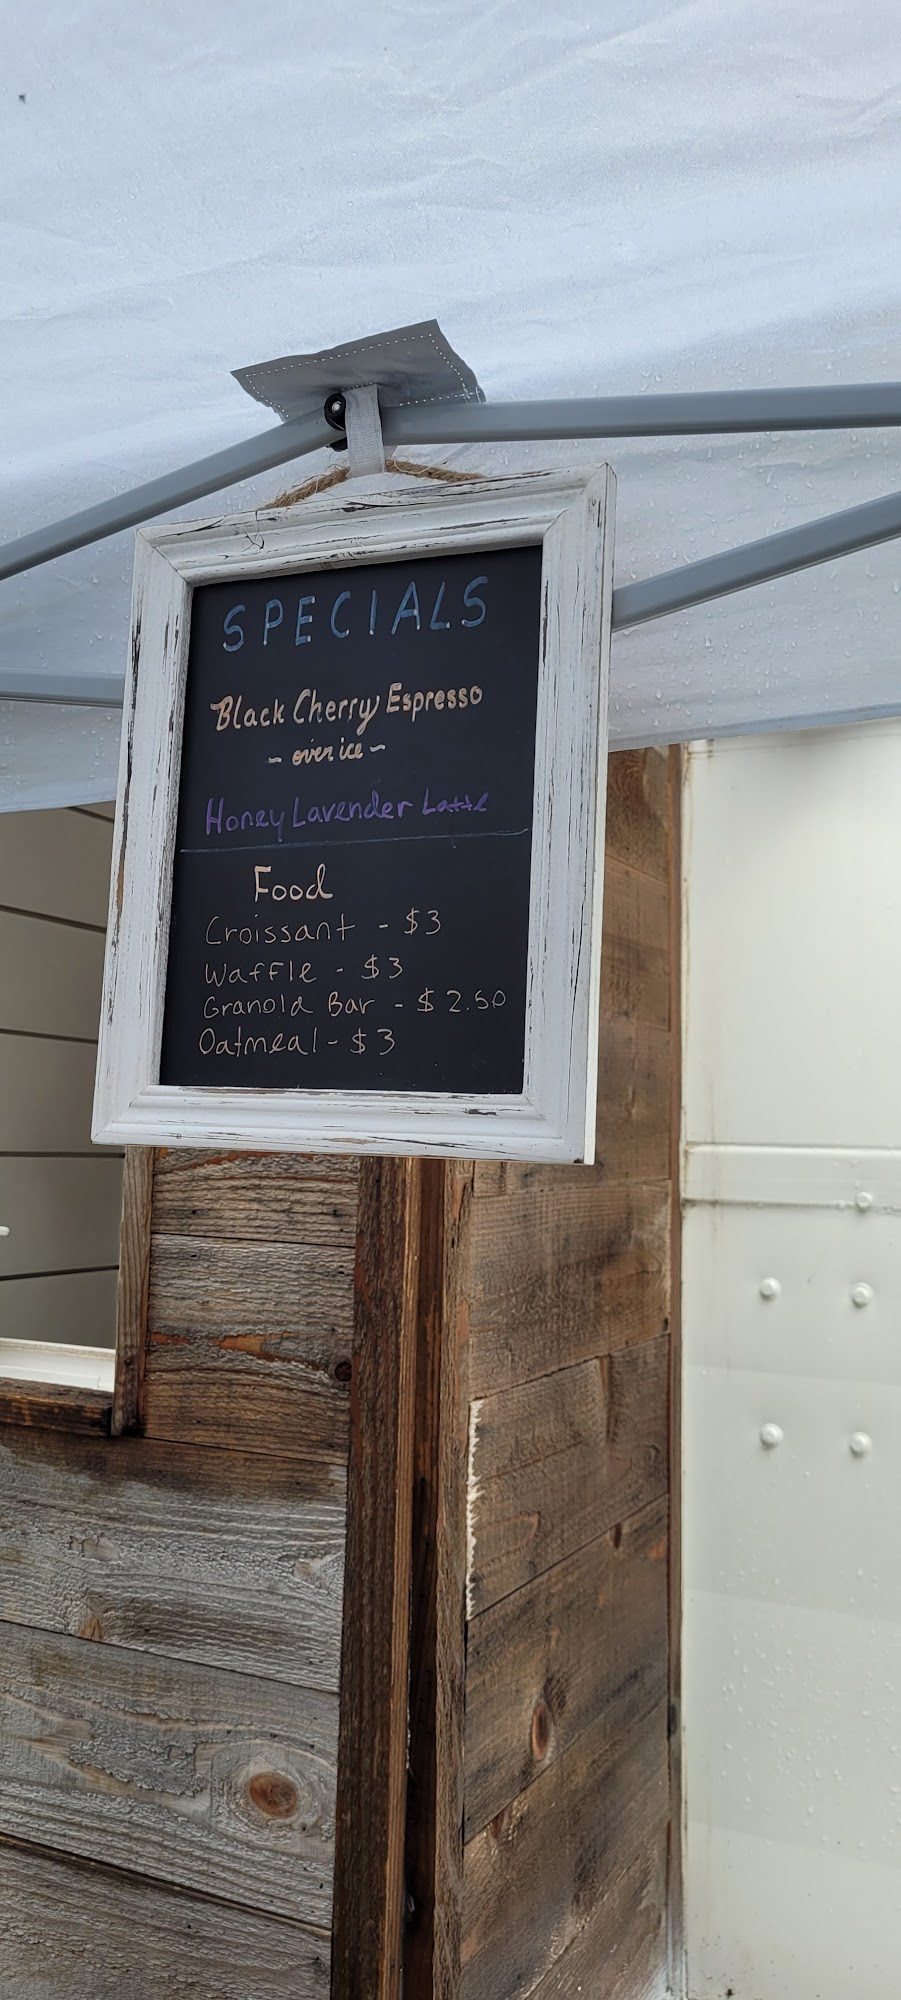 SPECIALS
Black Cherry Espresso
~ over ice ~
Honey Lavender Latte
Food
Croissant - $3
Waffle - $3
Granola Bar - $2.50
Oatmeal - $3